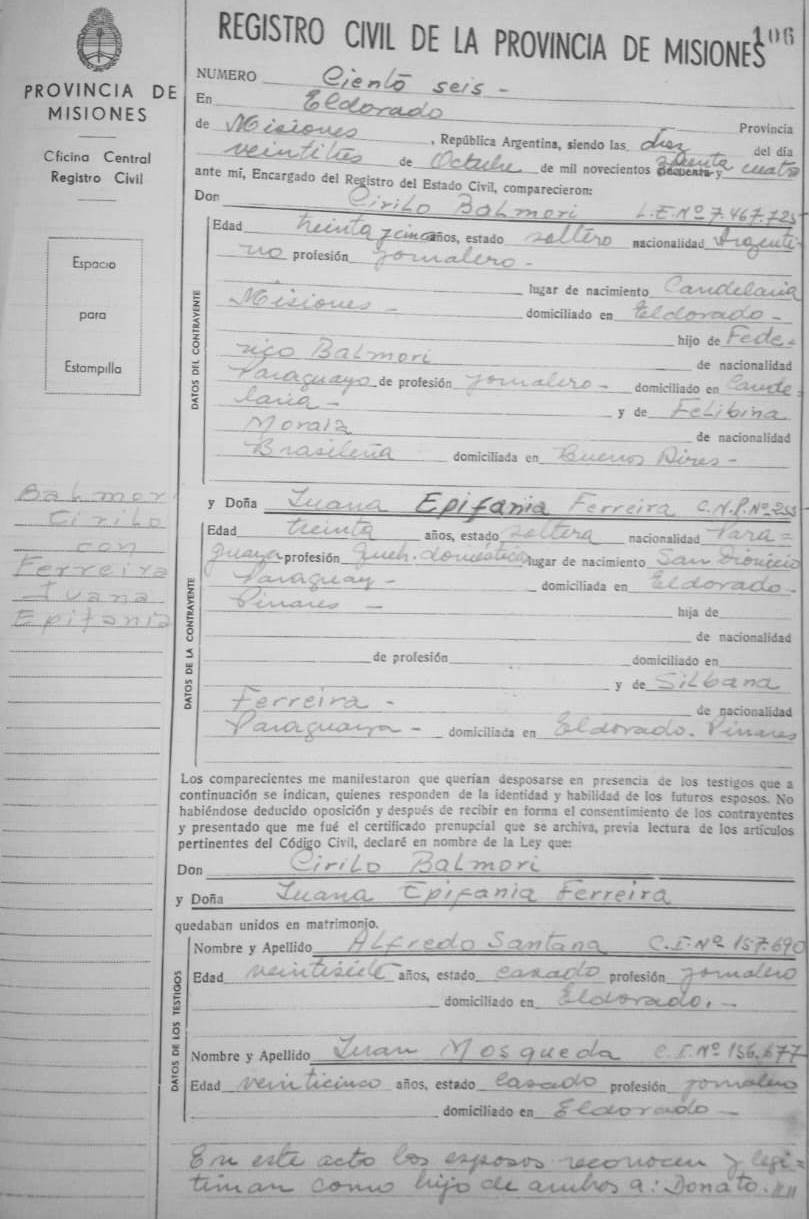 REGISTRO CIVIL DE LA PROVINCIA DE MISIONES
106
PROVINCIA DE
MISIONES
Oficina Central
Registro Civil
Espacio
para
Estampilla
Balmori
Cirilo
con
Ferreira
Juana
Epifania
NUMERO Ciento seis -
En Eldorado Provincia
de Misiones, República Argentina, siendo las diez del día
veintitres de Octubre de mil novecientos cincuenta y cuatro
ante mí, Encargado del Registro del Estado Civil, comparecieron:
Don Cirilo Balmori L.E. Nº 7.467.725
DATOS DEL CONTRAYENTE
Edad treinta y cinco años, estado soltero nacionalidad Argenti-
no profesión jornalero -
lugar de nacimiento Candelaria
Misiones - domiciliado en Eldorado -
hijo de Fede-
rico Balmori de nacionalidad
Paraguayo de profesión jornalero - domiciliado en Cande-
laria - y de Felibina
de nacionalidad
Brasileña domiciliada en Buenos Aires -
y Doña Juana Epifania Ferreira
DATOS DE LA CONTRAYENTE
Edad treinta años, estado soltera nacionalidad Para=
guaya profesión Queh. domésticos lugar de nacimiento San Dionicio
Paraguay - domiciliada en Eldorado -
Pinares - hija de
de nacionalidad
de profesión domiciliado en
y de Silbana
Ferreira - de nacionalidad
Paraguaya - domiciliada en Eldorado. Pinares
Los comparecientes me manifestaron que querían desposarse en presencia de los testigos que a
continuación se indican, quienes responden de la identidad y habilidad de los futuros esposos. No
habiéndose deducido oposición y después de recibir en forma el consentimiento de los contrayentes
y presentado que me fué el certificado prenupcial que se archiva, previa lectura de los artículos
pertinentes del Código Civil, declaré en nombre de la Ley que:
Don Cirilo Balmori
y Doña Juana Epifania Ferreira
quedaban unidos en matrimonio.
DATOS DE LOS TESTIGOS
Nombre y Apellido Alfredo Santana C.I. Nº 157.690
Edad veintisiete años, estado casado profesión jornalero
domiciliado en Eldorado. -
Nombre y Apellido Juan Mosqueda C.I. Nº 156.677
Edad veinticinco años, estado casado profesión jornalero
domiciliado en Eldorado -
En este acto los esposos reconocen y legi=
timan como hijo de ambos a: Donato.